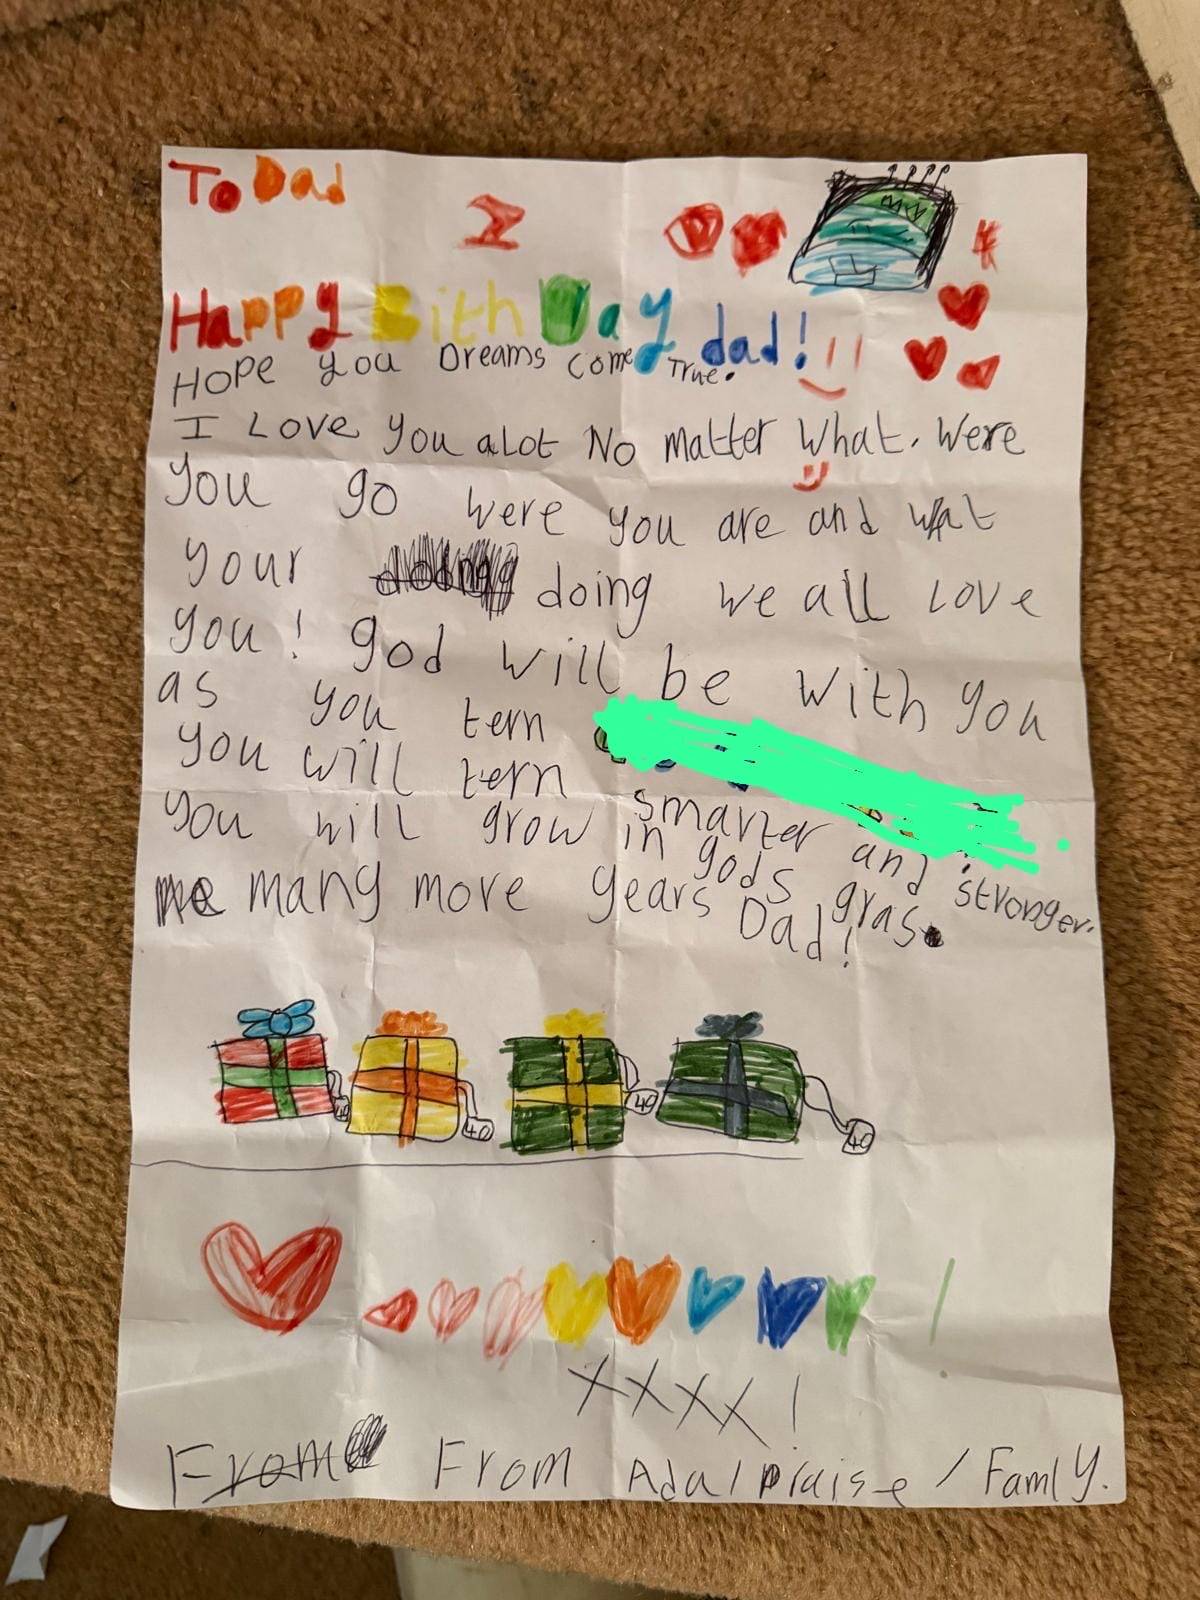 To Dad
Happy Bith Day dad!
HOPE you Dreams come True.
I LOVE you aLot No matter what. Were
you go were you are and wat
your doing doing we all love
you! god will be with you
as you tern
you will tern smarter and stronger.
you will grow in gods gras.
me many more years Dad!
40 40 40 40
XXXX!
From From Ada/praise/Famly.